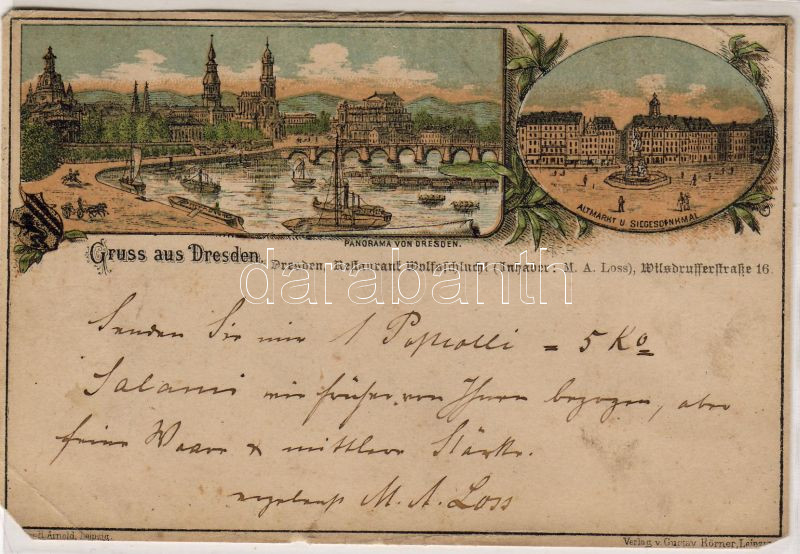 PANORAMA VON DRESDEN.
ALTMARKT U. SIEGESDENKMAL
Gruss aus Dresden.
Dresden, Restaurant Wolfsschlucht (Inhaber: M. A. Loss), Wilsdrufferstraße 16.
darabanth
Senden Sie mir 1 Postcolli = 5 Ko
Salami wie früher von Ihnen bezogen, aber
feine Waare & mittlere Stärke.
M. A. Loss
Arnold, Leipzig.
Verlag v. Gustav Körner, Leipzig